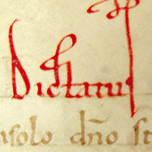 Dictatus
solo dño st